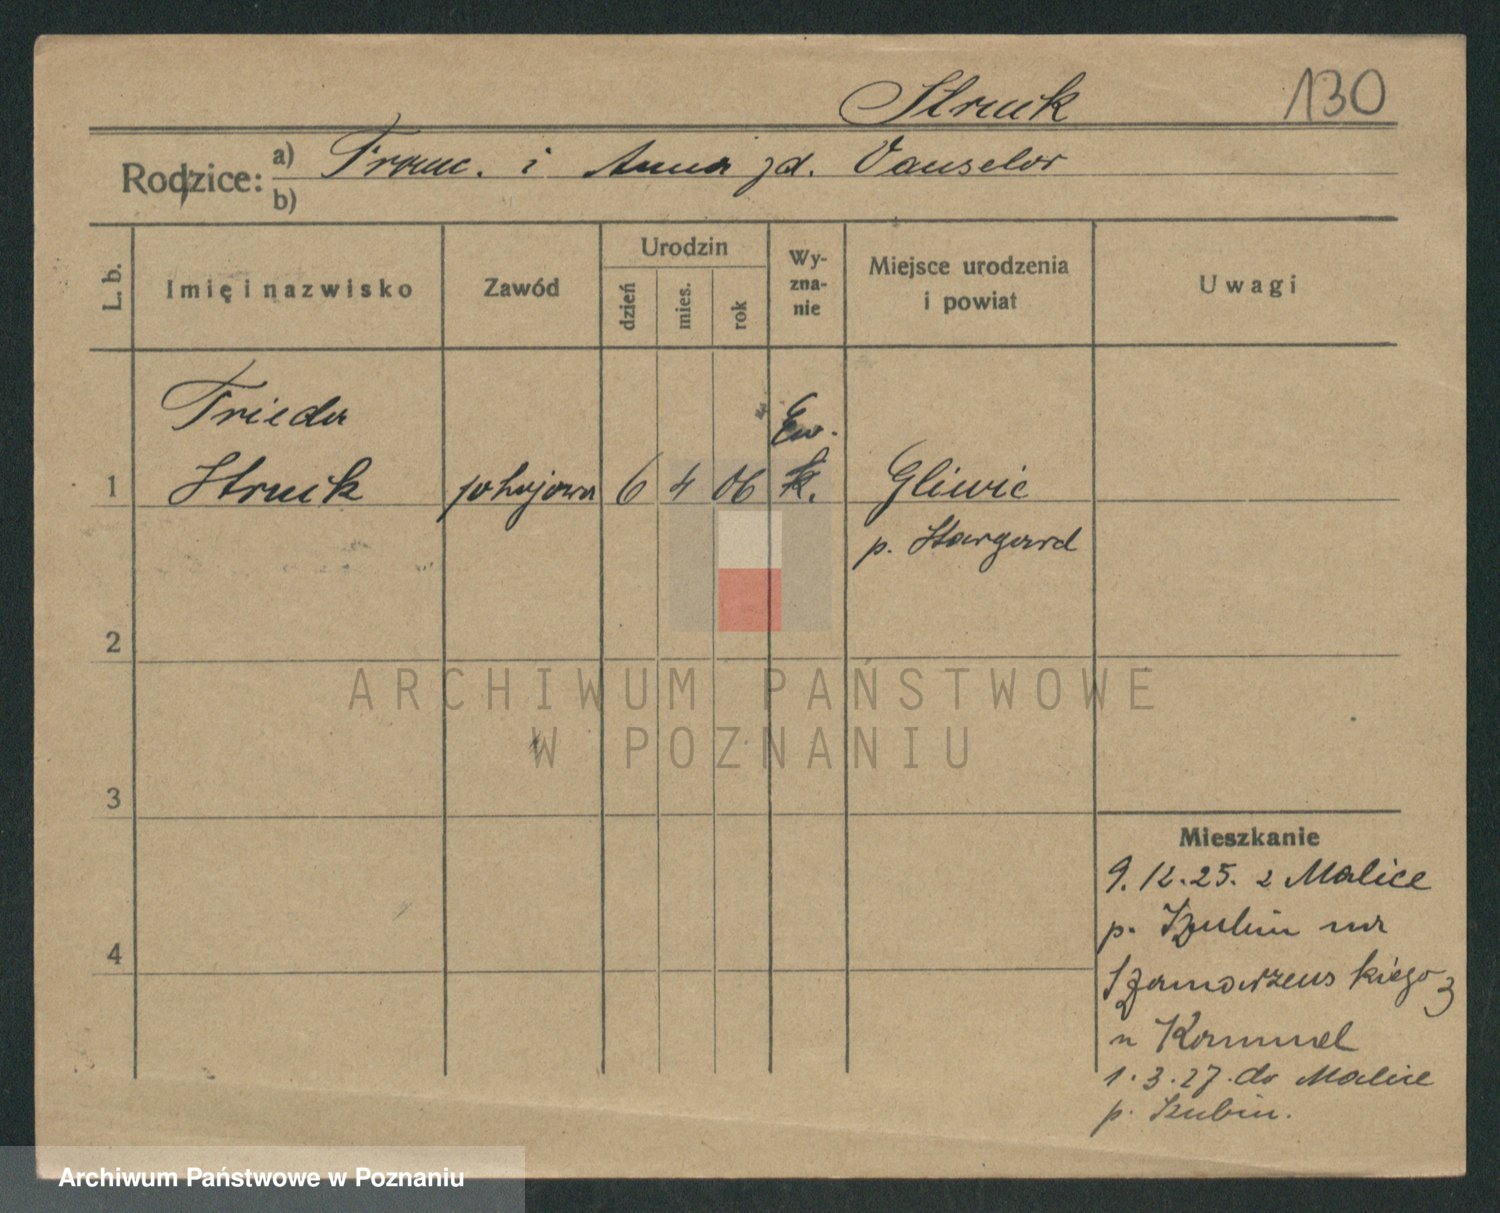 Struck
130
Rodzice: a) Franc. i Anna zd. Vanselov
b)
L. b. Imię i nazwisko Zawód Urodzin dzień mies. rok Wy-zna-nie Miejsce urodzenia i powiat Uwagi
Frieda Ew.
1 Struck pokojowa 6 4 06 k. Gliwic
p. Stargard
2
ARCHIWUM PAŃSTWOWE
W POZNANIU
3
Mieszkanie
9.12.25. z Malice
p. Szubin na
Szamarzewskiego 3
u Kommel
4
1.3.27. do Malice
p. Szubin.
Archiwum Państwowe w Poznaniu